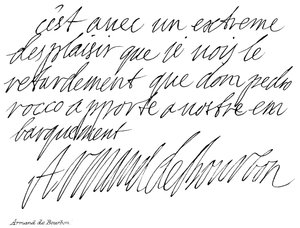 c'est avec un extreme
desplaisir que je vois le
retardement que dom pedro
rocco apporte a nostre em
barquement
Armand de Bourbon
Armand de Bourbon